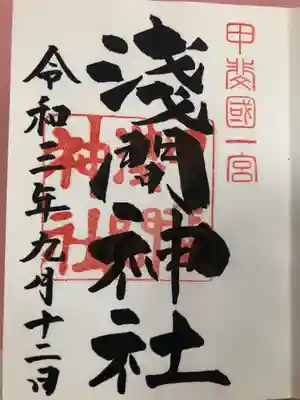 甲斐國一宮
淺間神社
淺間神社
令和三年九月十二日